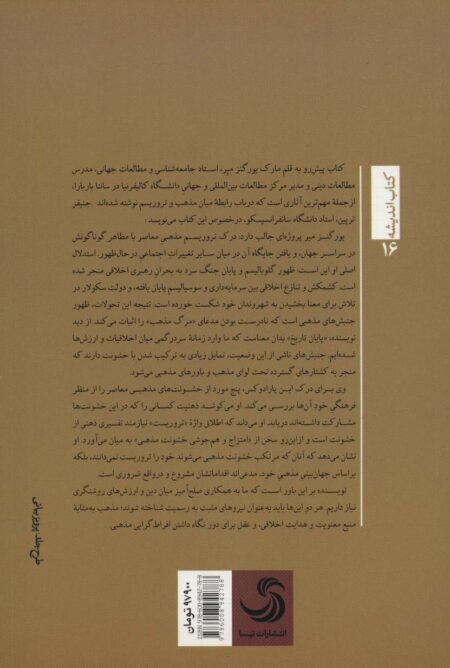 کتاب پیش‌رو به قلم مارک یورگنز میر، استاد جامعه‌شناسی و مطالعات جهانی، مدرس
مطالعات دینی و مدیر مرکز مطالعات بین‌المللی و جهانی دانشگاه کالیفرنیا در سانتا باربارا،
از جملهٔ مهم‌ترین آثاری است که در باب رابطهٔ میان مذهب و تروریسم نوشته شده‌اند. جنیفر
ترپین، استاد دانشگاه سانفرانسیسکو، درخصوص این کتاب می‌نویسد:
یورگنز میر پروژه‌ای جالب دارد: درک تروریسم مذهبی معاصر با مظاهر گوناگونش
در سراسر جهان، و یافتن جایگاه آن در میان سایر تغییرات اجتماعی درحال‌ظهور. استدلال
اصلی او این است: ظهور گلوبالیسم و پایان جنگ سرد به بحران رهبری اخلاقی منجر شده
است. کشمکش و تنازع اخلاقی بین سرمایه‌داری و سوسیالیسم پایان یافته، و دولت سکولار در
تلاش برای معنا بخشیدن به شهروندان خود شکست خورده است. نتیجه این تحولات، ظهور
جنبش‌های مذهبی است که نادرست بودن مدعای «مرگ مذهب» را اثبات می‌کند. از دید
نویسنده، «پایان تاریخ» بدان معناست که ما وارد زمانهٔ سردرگمی میان اخلاقیات و ارزش‌ها
شده‌ایم. جنبش‌های ناشی از این وضعیت، تمایل زیادی به ترکیب شدن با خشونت دارند که
منجر به کشتارهای گسترده تحت لوای مذهب و باورهای مذهبی می‌شود.
وی برای درک این پارادوکس، پنج مورد از خشونت‌های مذهبی معاصر را از منظر
فرهنگی خود آن‌ها بررسی می‌کند. او می‌کوشد ذهنیت کسانی را که در این خشونت‌ها
مشارکت داشته‌اند دریابد. او می‌داند که اطلاق واژهٔ «تروریست» نیازمند تفسیری ذهنی از
خشونت است و ازاین‌رو سخن از «امتزاج و هم‌جوشی خشونت مذهبی» به میان می‌آورد. او
نشان می‌دهد که آنان که مرتکب خشونت مذهبی می‌شوند خود را تروریست نمی‌دانند، بلکه
براساس جهان‌بینی مذهبی خود، مدعی‌اند اقداماتشان مشروع و درواقع ضروری است.
نویسنده بر این باور است که ما به همکاری صلح‌آمیز میان دین و ارزش‌های روشنگری
نیاز داریم. هر دو این‌ها باید به‌عنوان نیروهای مثبت به رسمیت شناخته شوند؛ مذهب به‌مثابهٔ
منبع معنویت و هدایت اخلاقی، و عقل برای دور نگاه داشتن افراط‌گرایی مذهبی.
کتاب اندیشه
۱۶
طرح جلد: پرویز بیانی
انتشارات تیسا
ISBN: 978-600-8942-78-8
9786008942788
۹۷۹۰۰ تومان